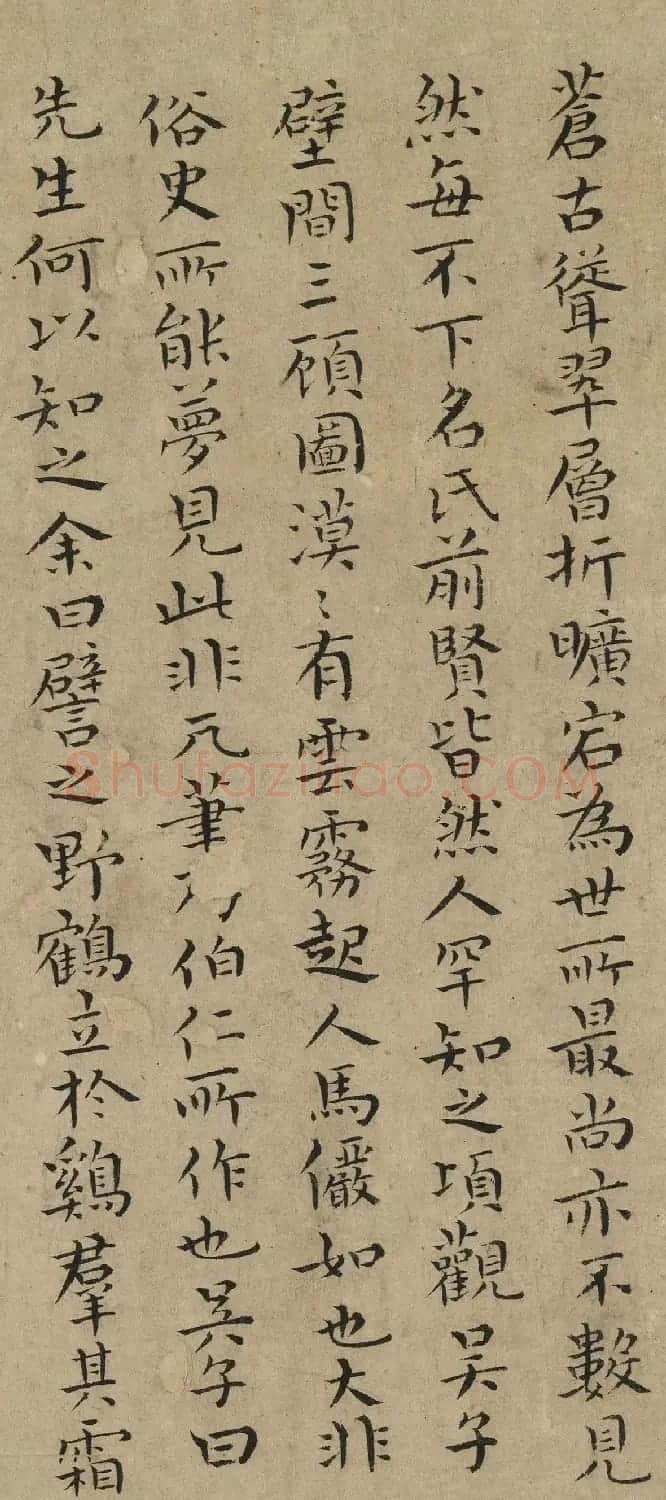 蒼古聳翠層折曠宕為世所最尚亦不數見
然每不下名氏前賢皆然人罕知之頃觀吴子
壁間三顧圖漠〻有雲霧起人馬儼如也大非
俗史所能夢見此非凡筆乃伯仁所作也吴子曰
先生何以知之余曰譬之野鶴立於鷄羣其霜
shufaziliao.COM